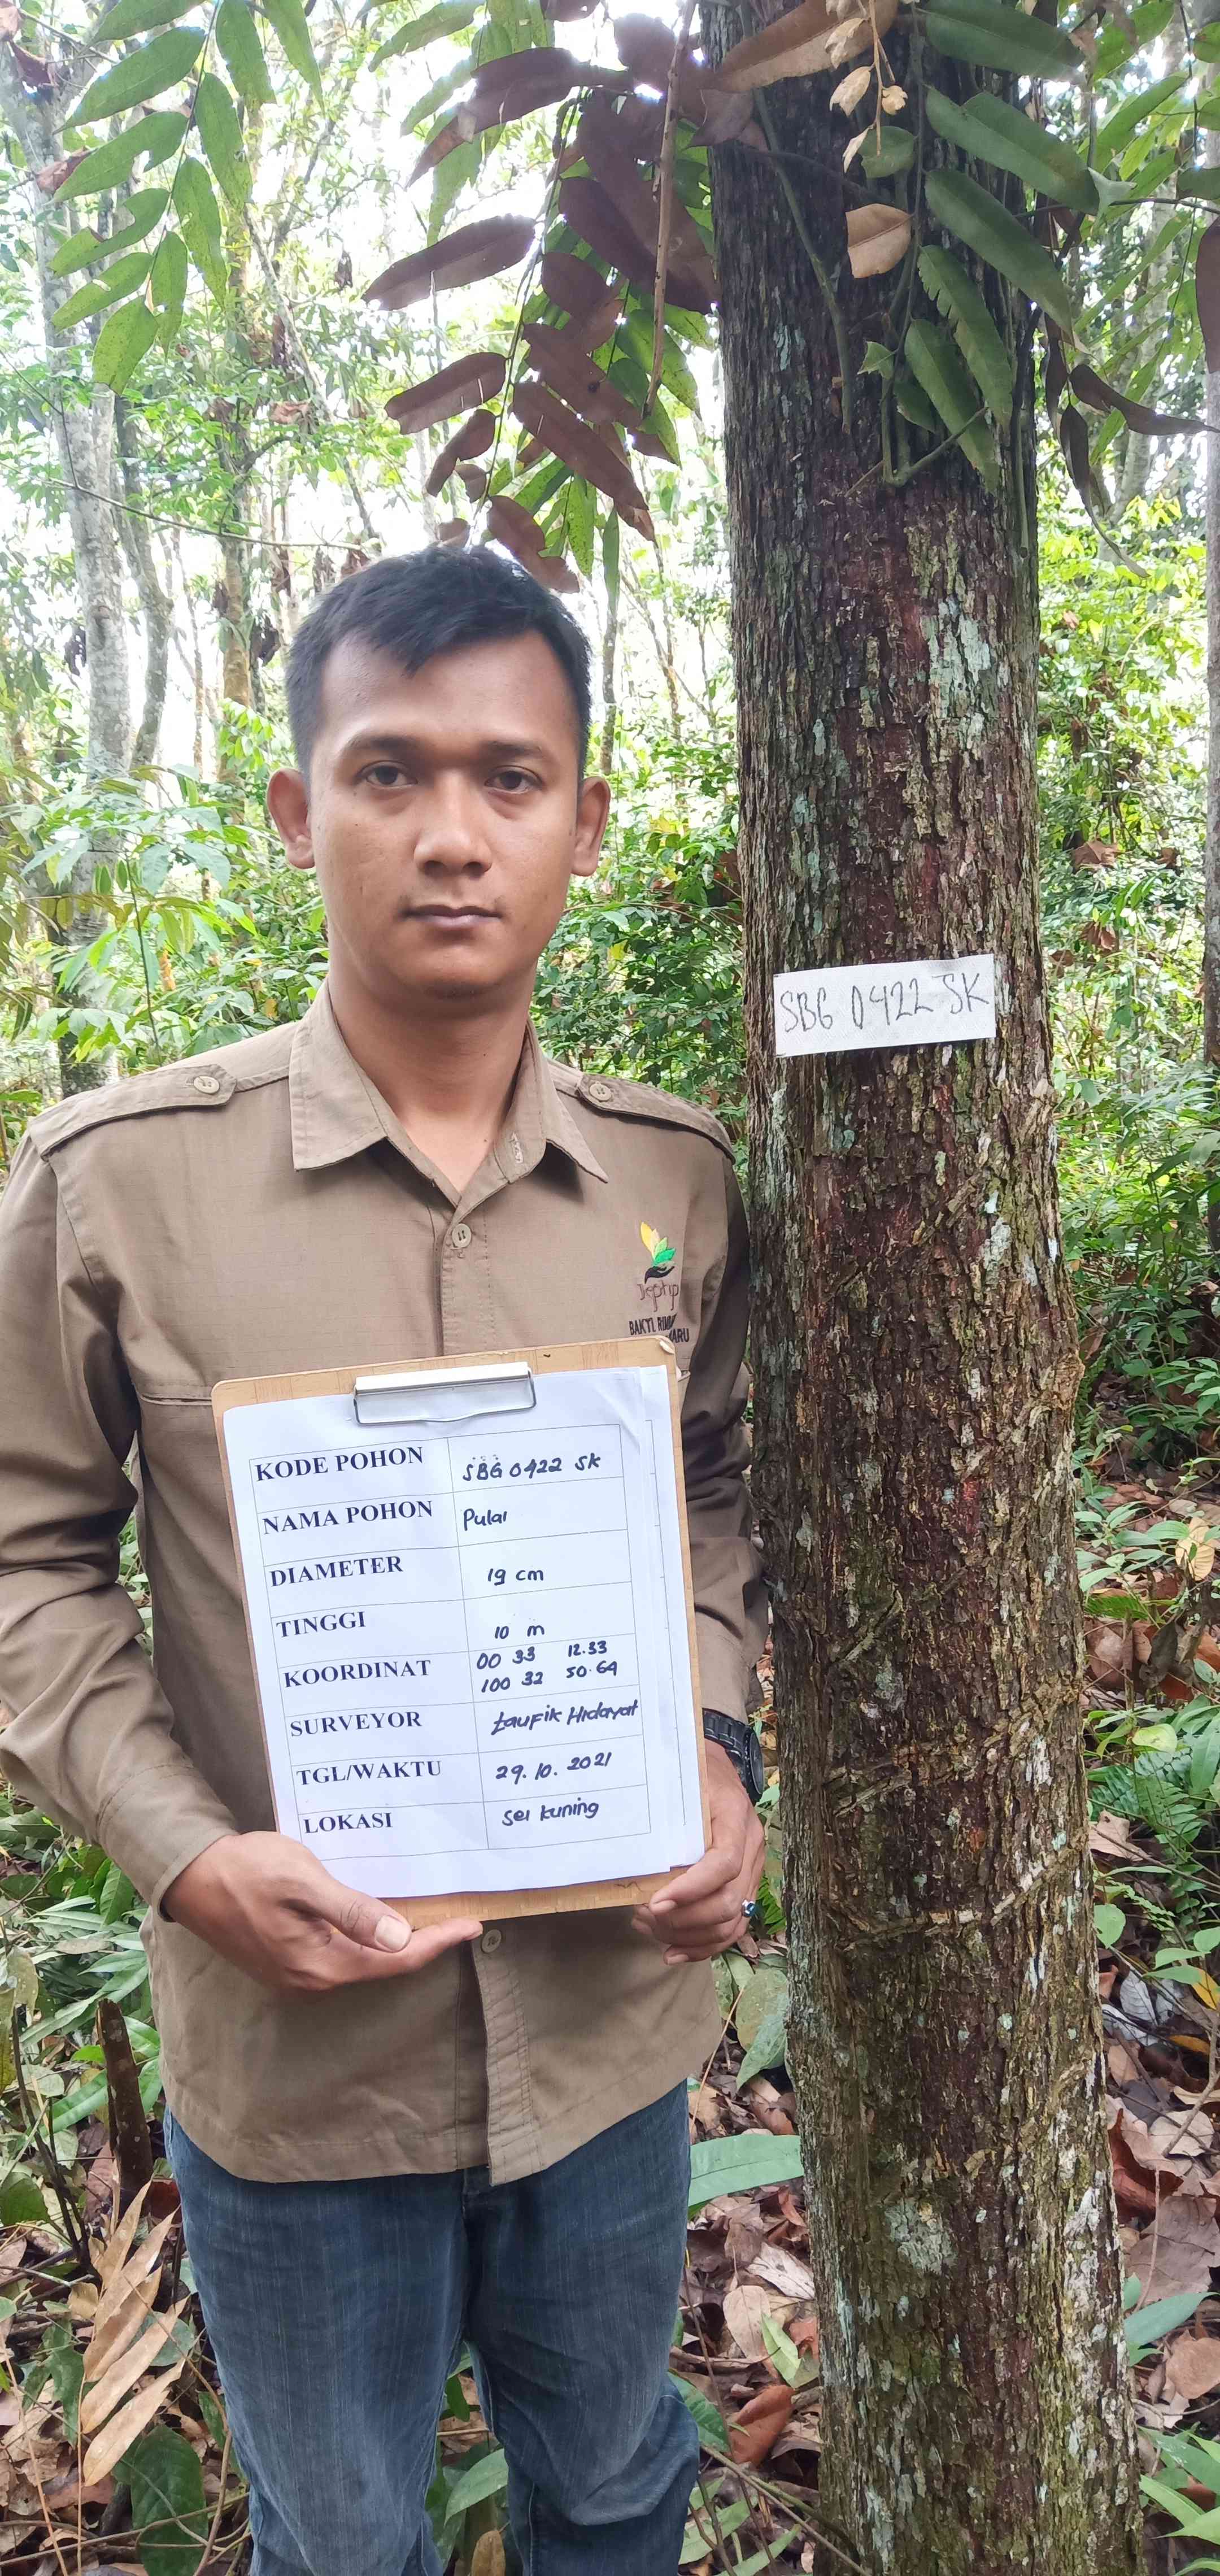 SBG 0422 SK
BAKTI
KODE POHON SBG 0422 SK
NAMA POHON Pulai
DIAMETER 19 cm
TINGGI 10 m
KOORDINAT 00 33 12.33
100 32 50.64
SURVEYOR taufik Hidayat
TGL/WAKTU 29.10.2021
LOKASI Sei kuning